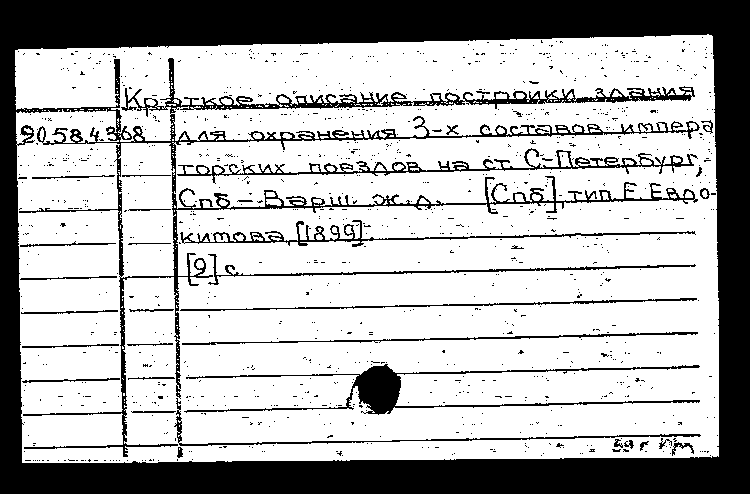 Краткое описание постройки здания
20.58.4.368 для охранения 3-х составов импера
торских поездов на ст. С-Петербург,
Спб – Варш. ж.д. [Спб], тип. Е. Евдо-
кимова, [1899].
[9] с.
59 г.